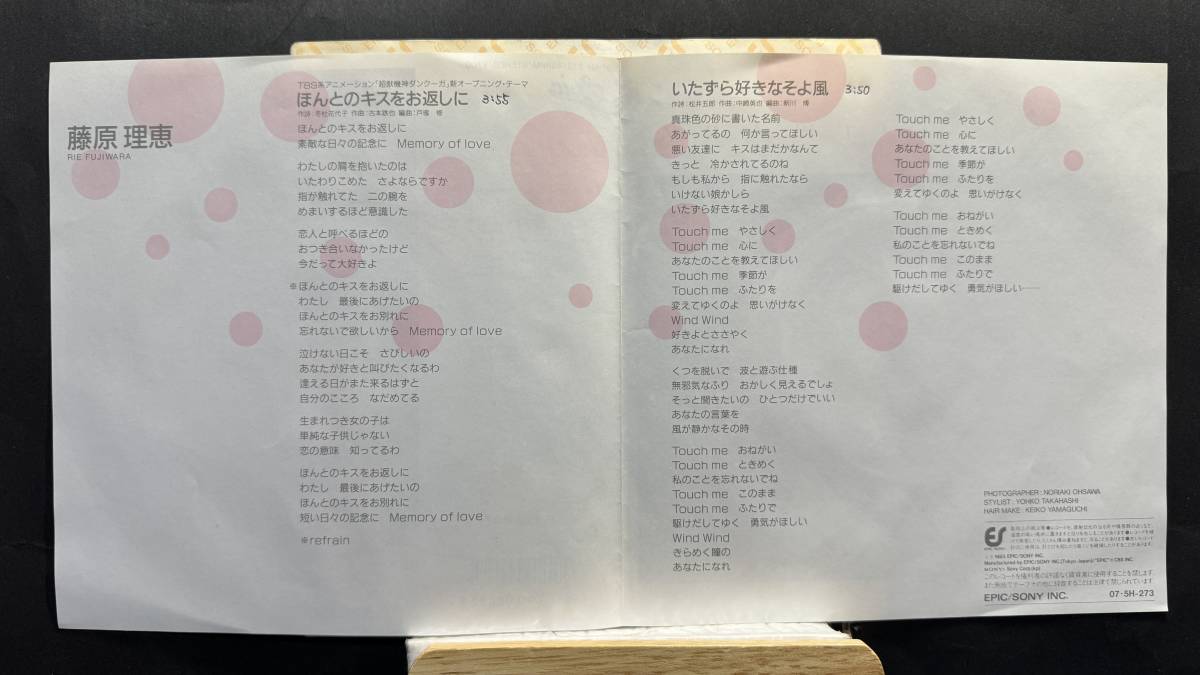 藤原 理恵
RIE FUJIWARA
TBS系アニメーション「超獣機神ダンクーガ」新オープニング・テーマ
ほんとのキスをお返しに 3:55
作詩：冬杜花代子 作曲：古本鉄也 編曲：戸塚 修
ほんとのキスをお返しに
素敵な日々の記念に Memory of love
わたしの肩を抱いたのは
いたわりこめた さよならですか
指が触れてた 二の腕を
めまいするほど意識した
恋人と呼べるほどの
おつき合いなかったけど
今だって大好きよ
※ほんとのキスをお返しに
わたし 最後にあげたいの
ほんとのキスをお別れに
忘れないで欲しいから Memory of love
泣けない日こそ さびしいの
あなたが好きと叫びたくなるわ
逢える日がまた来るはずと
自分のこころ なだめてる
生まれつき女の子は
単純な子供じゃない
恋の意味 知ってるわ
ほんとのキスをお返しに
わたし 最後にあげたいの
ほんとのキスをお別れに
短い日々の記念に Memory of love
※refrain
いたずら好きなそよ風 3:50
作詩：松井五郎 作曲：中崎英也 編曲：新川 博
真珠色の砂に書いた名前
あがってるの 何か言ってほしい
悪い友達に キスはまだかなんて
きっと 冷かされてるのね
もしも私から 指に触れたなら
いけない娘かしら
いたずら好きなそよ風
Touch me やさしく
Touch me 心に
あなたのことを教えてほしい
Touch me 季節が
Touch me ふたりを
変えてゆくのよ 思いがけなく
Wind Wind
好きよとささやく
あなたになれ
くつを脱いで 波と遊ぶ仕種
無邪気なふり おかしく見えるでしょ
そっと聞きたいの ひとつだけでいい
あなたの言葉を
風が静かなその時
Touch me おねがい
Touch me ときめく
私のことを忘れないでね
Touch me このまま
Touch me ふたりで
駆けだしてゆく 勇気がほしい
Wind Wind
きらめく瞳の
あなたになれ
Touch me やさしく
Touch me 心に
あなたのことを教えてほしい
Touch me 季節が
Touch me ふたりを
変えてゆくのよ 思いがけなく
Touch me おねがい
Touch me ときめく
私のことを忘れないでね
Touch me このまま
Touch me ふたりで
駆けだしてゆく 勇気がほしい……
PHOTOGRAPHER：NORIAKI OHSAWA
STYLIST：YOHKO TAKAHASHI
HAIR MAKE：KEIKO YAMAGUCHI
ES
Manufactured by EPIC/SONY INC. (Tokyo Japan)/"EPIC" CBS INC.
Sony Corp.
このレコードを権利者の許諾なく賃貸業に使用することを禁じます。
また無断でテープその他に録音することは法律で禁じられています
EPIC/SONY INC. 07·5H-273